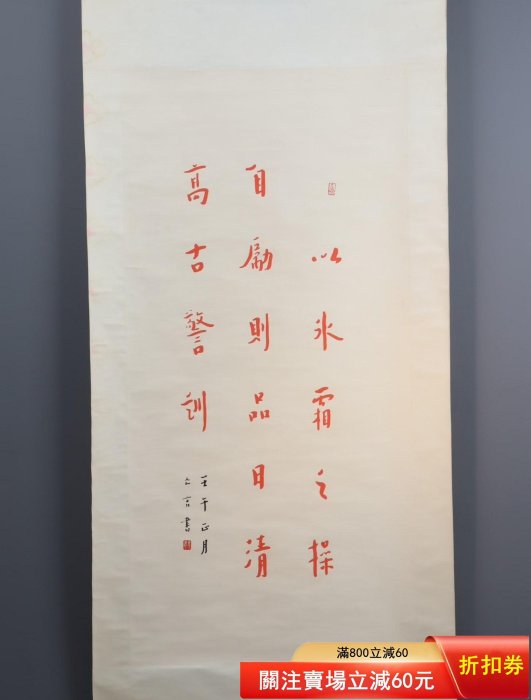 以氷霜之操
自勵則品日清
高古警訓
壬午正月
亡言書
滿800立減60
關注賣場立減60元
折扣券